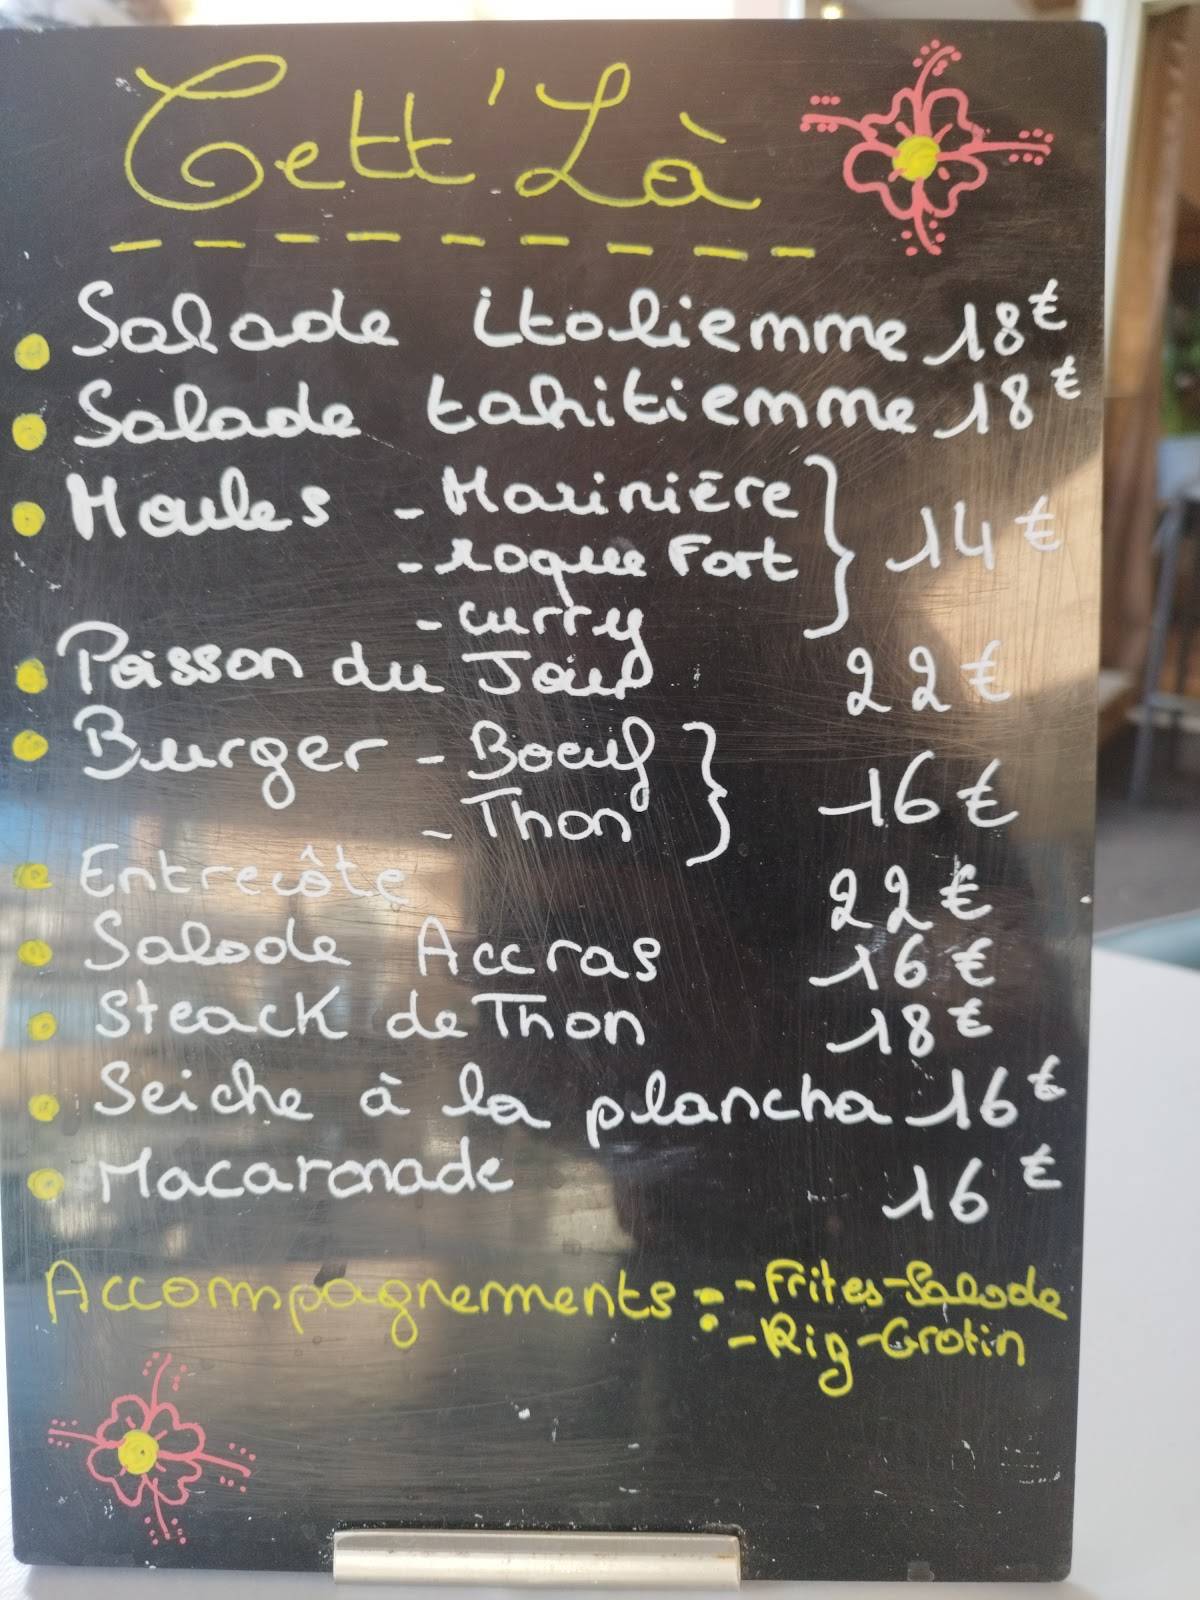 Cett'Là
Salade italienne 18€
Salade tahitienne 18€
Moules - Marinière
- roquefort 14€
- curry
Poisson du Jour 22€
Burger - Boeuf
- Thon 16€
Entrecôte 22€
Salade Accras 16€
Steack de Thon 18€
Seiche à la plancha 16€
Macaronade 16€
Accompagnements : - Frites - Salade
- Riz - Gratin